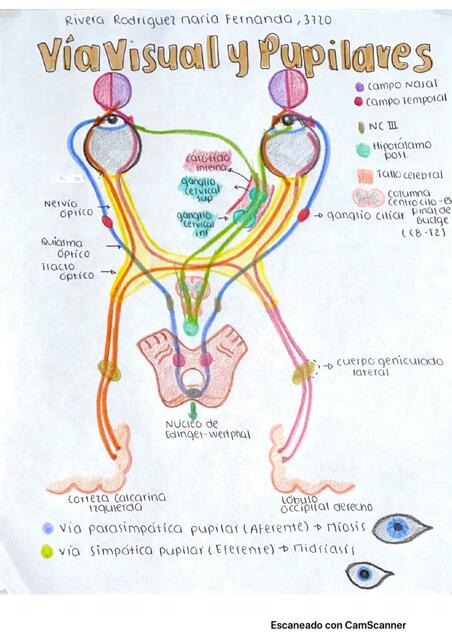 Rivera Rodriguez Maria Fernanda, 3720
Vía Visual y Pupilares
campo Nasal
campo Temporal
NC III
Hipotálamo
post.
Tallo cerebral
Columna
centro cilo-es
pinal de
Budge
(C8-T2)
carótida
interna
ganglio
cervical
sup
ganglio
cervical
inf
ganglio ciliar
Nervio
óptico
Quiasma
óptico
Tracto
óptico
cuerpo geniculado
lateral
Núcleo de
Edinger-westphal
corteza calcarina
izquierda
lóbulo
occipital derecho
vía parasimpática pupilar (Aferente) → Miosis
vía simpática pupilar (Eferente) → Midriasis
Escaneado con CamScanner